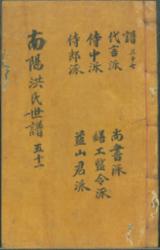 南陽洪氏世譜 五十一
譜 三十七
代言派
侍中派
侍郎派
尚書派
繕工監令派
益山君派